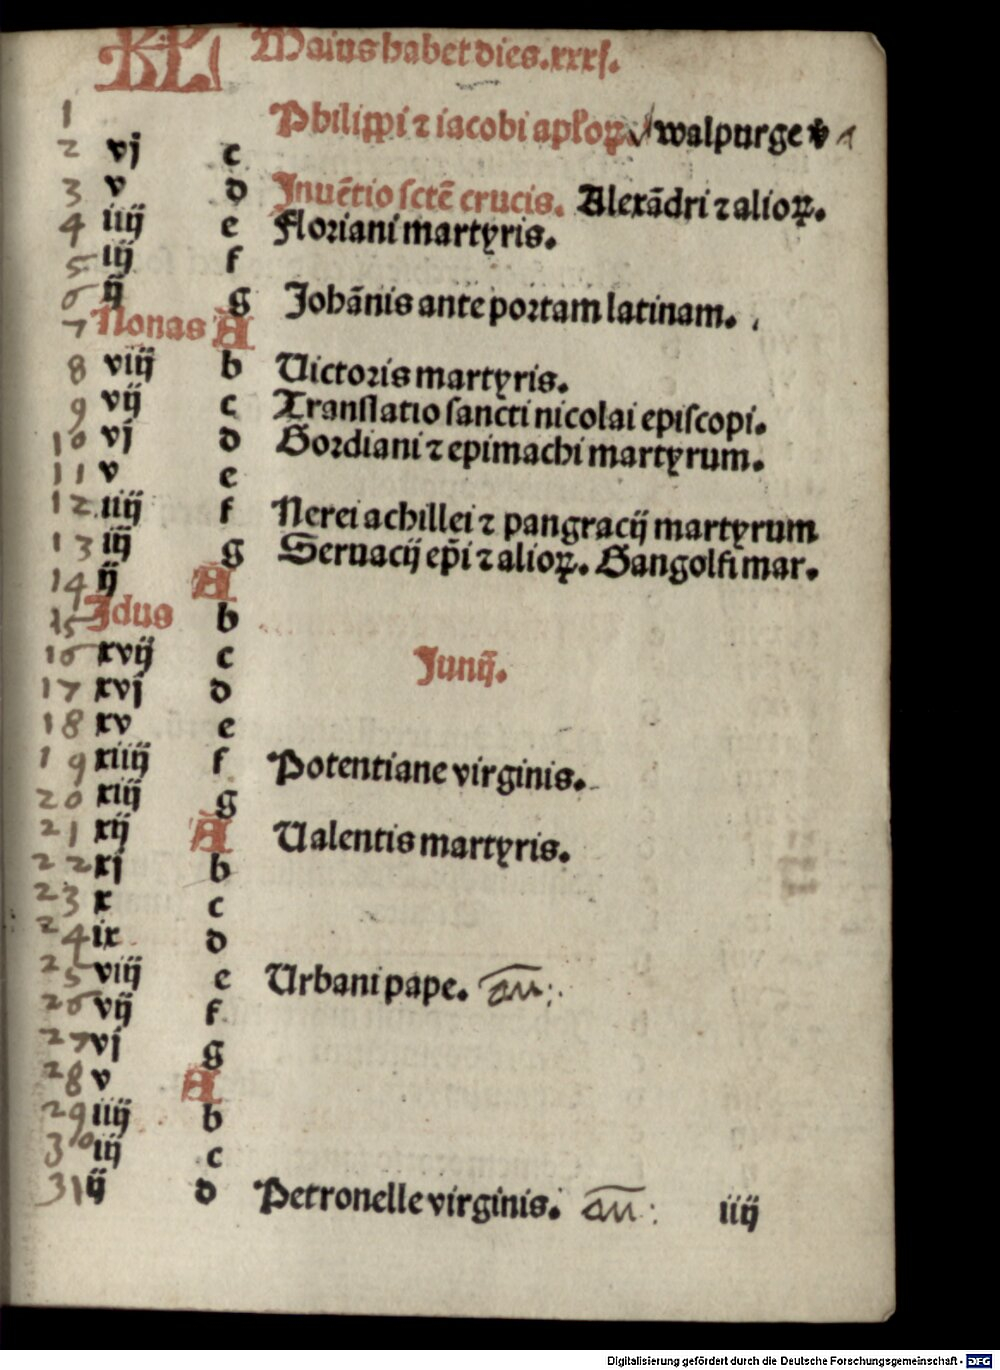 KL Maius habet dies.xxxj.
1 Philippi ⁊ iacobi apl'oꝝ. walpurge v̄
2 vj c
3 v d Inuētio sctē crucis. Alexādri ⁊ alioꝝ.
4 iiij e Floriani martyris.
5 iij f
6 ij g Johānis ante portam latinam.
7 Nonas A
8 viij b Uictoris martyris.
9 vij c Translatio sancti nicolai episcopi.
10 vj d Gordiani ⁊ epimachi martyrum.
11 v e
12 iiij f Nerei achillei ⁊ pangracij martyrum
13 iij g Seruacij ep̄i ⁊ alioꝝ. Gangolfi mar.
14 ij A
15 Idus b
16 xvij c Junij.
17 xvj d
18 xv e
19 xiiij f Potentiane virginis.
20 xiij g
21 xij A Ualentis martyris.
22 xj b
23 x c
24 ix d
25 viij e Urbani pape. an:
26 vij f
27 vj g
28 v A
29 iiij b
30 iij c
31 ij d Petronelle virginis. an: iiij
Digitalisierung gefördert durch die Deutsche Forschungsgemeinschaft - DFG